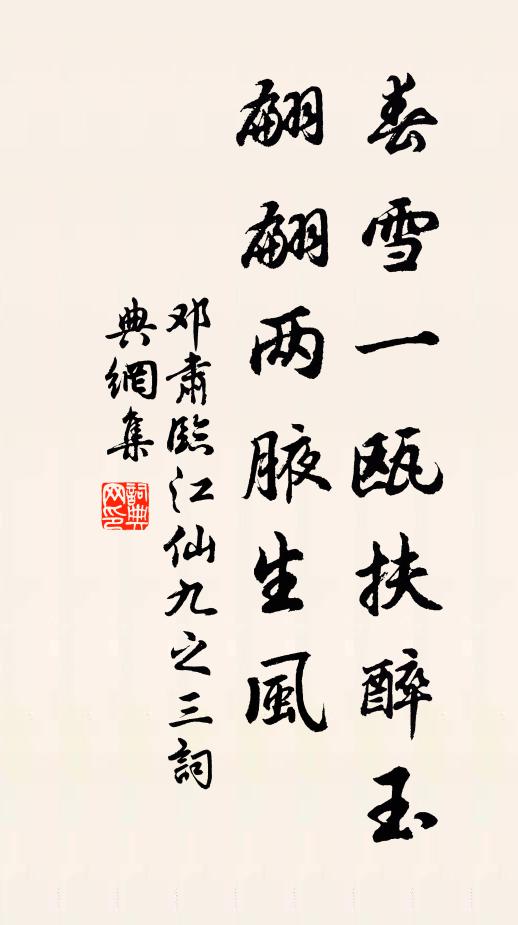 春雪一瓯扶醉玉
翩翩两腋生風
邓肅臨江仙九之三詞
典網集
詞典网印